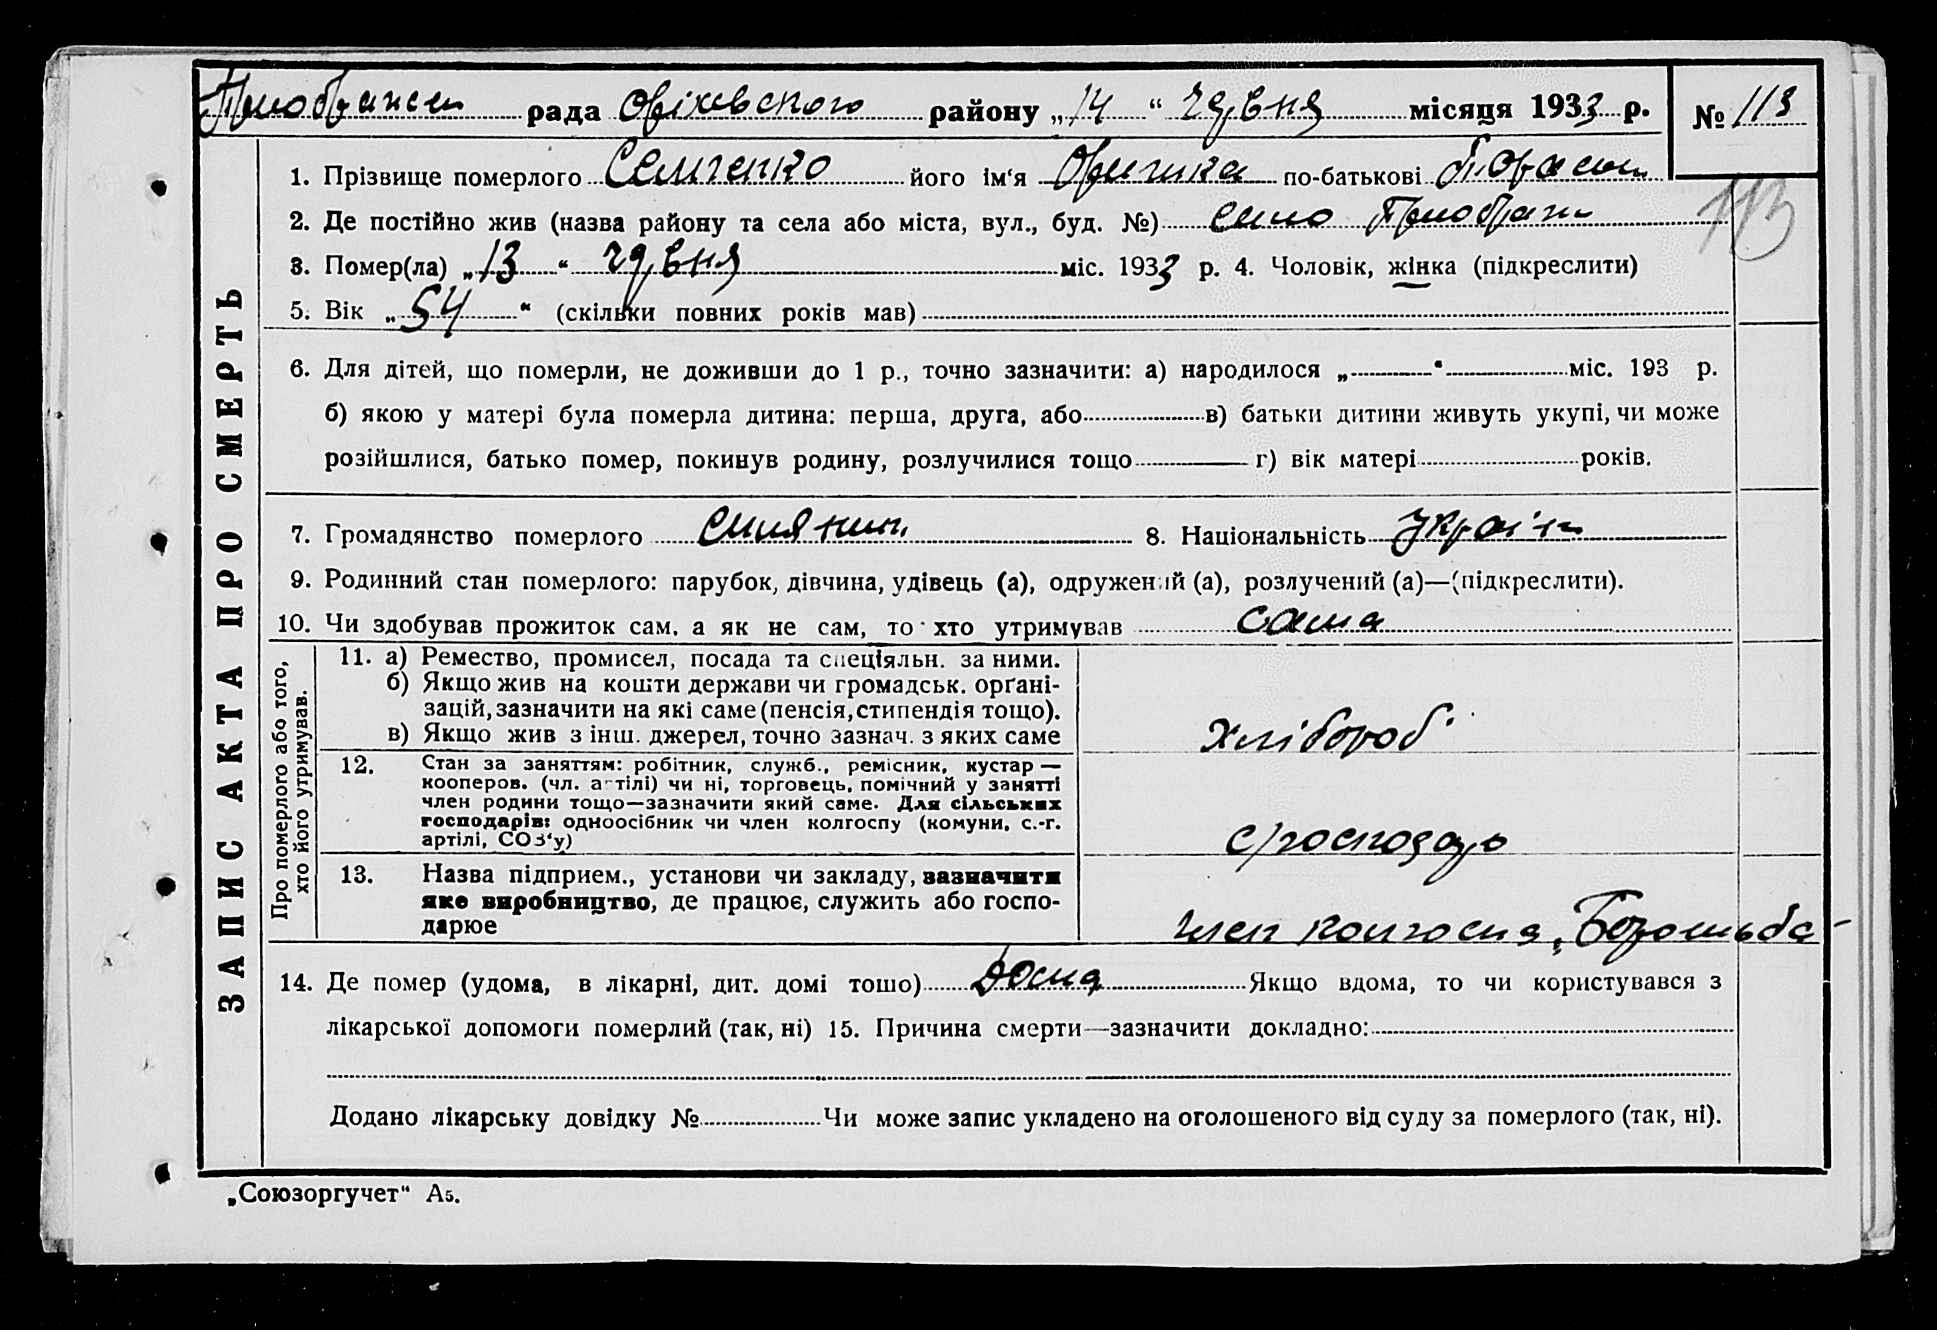 Преображен рада Оріхевського району „14“ червня місяця 1933 р. № 113
1. Прізвище померлого Семченко його ім‘я по-батькові Тарасов
113
2. Де постійно жив (назва району та села або міста, вул., буд. №) село Преображ
3. Помер(ла) „13“ червня міс. 1933 р. 4. Чоловік, жінка (підкреслити)
5. Вік „54“ (скільки повних років мав)
6. Для дітей, що померли, не доживши до 1 р., точно зазначити: а) народилося „ “ міс. 193 р.
б) якою у матері була померла дитина: перша, друга, або в) батьки дитини живуть укупі, чи може
розійшлися, батько помер, покинув родину, розлучилися тощо г) вік матері років.
7. Громадянство померлого 8. Національність україн
9. Родинний стан померлого: парубок, дівчина, удівець (а), одружений (а), розлучений (а)—(підкреслити).
10. Чи здобував прожиток сам, а як не сам, то хто утримував сама
ЗАПИС АКТА ПРО СМЕРТЬ
Про померлого або того,
хто його утримував.
11. а) Ремество, промисел, посада та спеціяльн. за ними.
б) Якщо жив на кошти держави чи громадськ. орґані-
зацій, зазначити на які саме (пенсія, стипендія тощо).
в) Якщо жив з інш. джерел, точно зазнач. з яких саме
хлібороб
12. Стан за заняттям: робітник, служб., ремісник, кустар—
кооперов. (чл. артілі) чи ні, торговець, помічний у занятті
член родини тощо—зазначити який саме. Для сільських
господарів: одноосібник чи член колгоспу (комуни, с.-г.
артілі, СОЗ‘у)
13. Назва підприєм., установи чи закладу, зазначити
яке виробництво, де працює, служить або госпо-
дарює
член колгоспа „Боротьба
14. Де помер (удома, в лікарні, дит. домі тошо) дома Якщо вдома, то чи користувався з
лікарської допомоги померлий (так, ні) 15. Причина смерти—зазначити докладно:
Додано лікарську довідку № Чи може запис укладено на оголошеного від суду за померлого (так, ні).
„Союзоргучет“ А5.